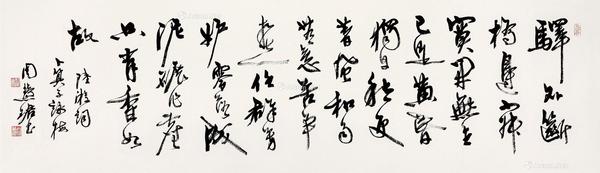 驛外斷
橋邊寂
寞開無主
已是黃昏
獨自愁更
著風和雨
無意苦爭
春一任群芳
妒零落成
泥碾作塵
只有香如
故
陸游詞
卜算子詠梅